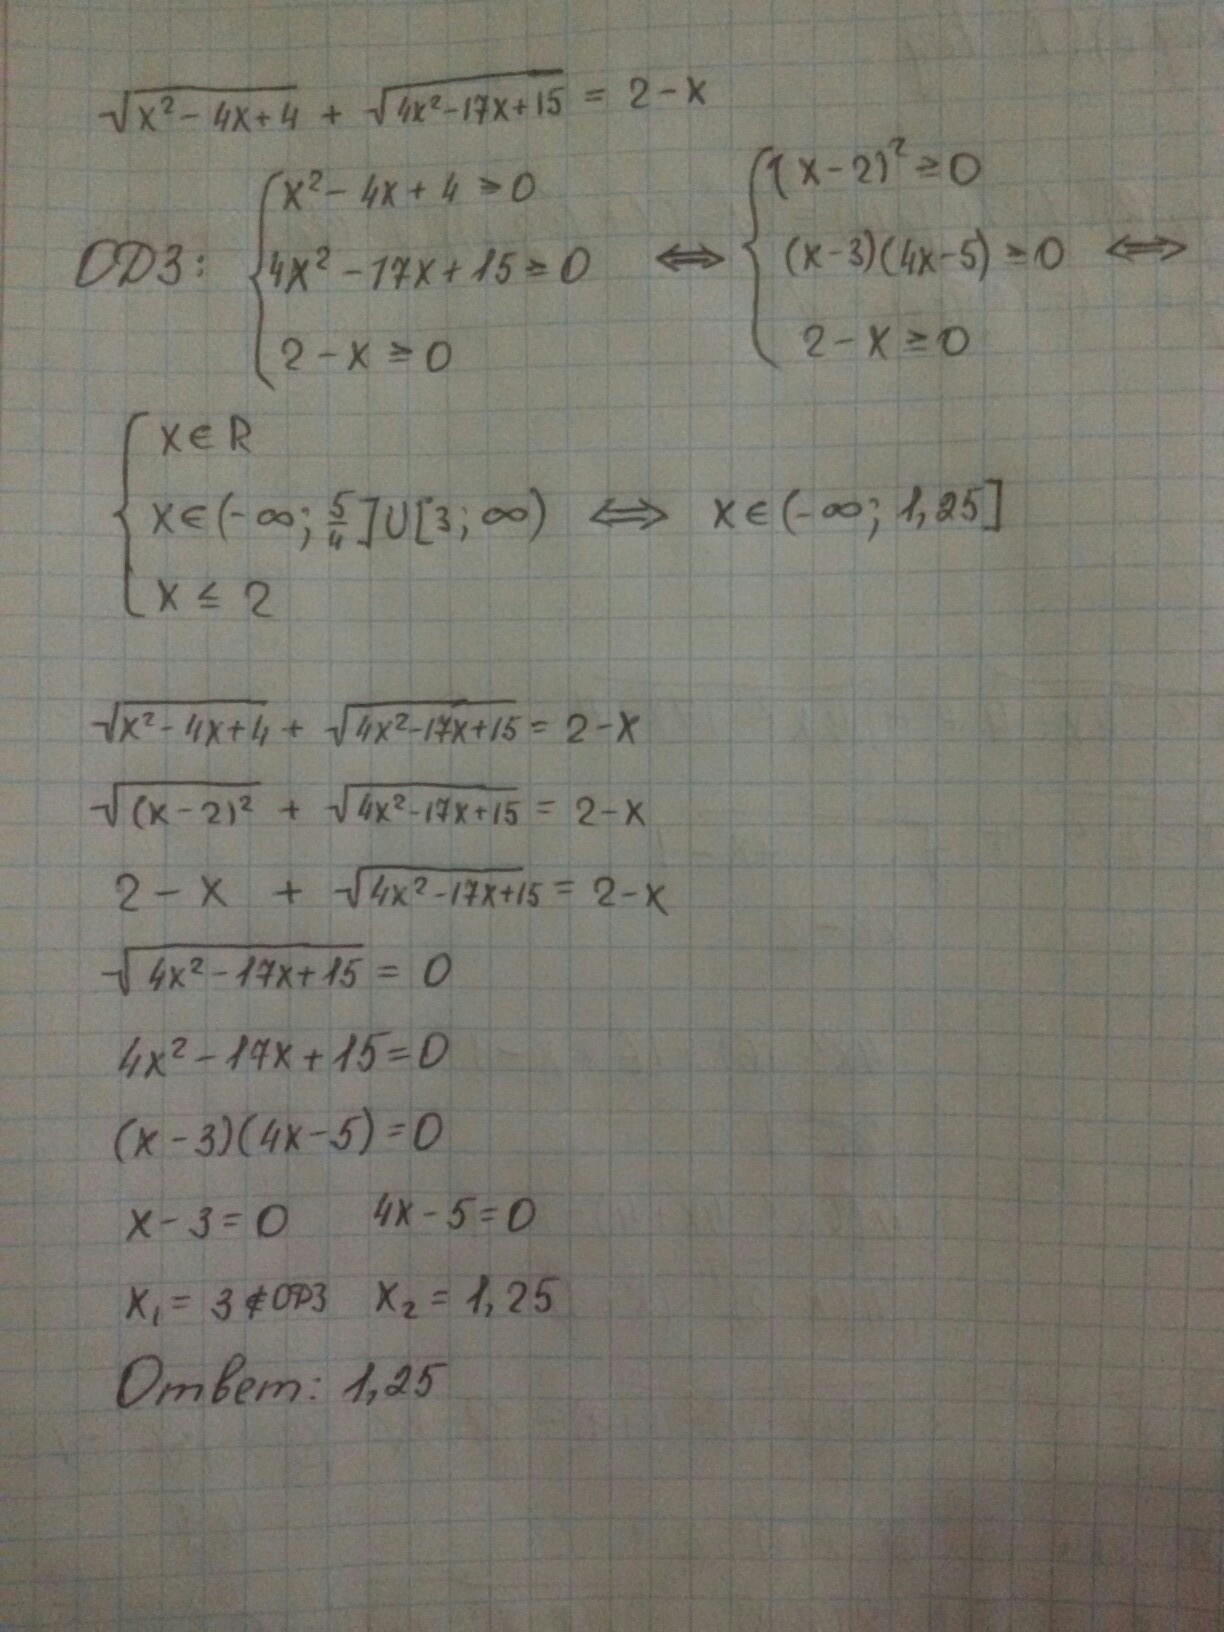 √(x² - 4x + 4) + √(4x² - 17x + 15) = 2 - x
ОДЗ: { x² - 4x + 4 ≥ 0; 4x² - 17x + 15 ≥ 0; 2 - x ≥ 0 ⇔ { (x - 2)² ≥ 0; (x - 3)(4x - 5) ≥ 0; 2 - x ≥ 0 ⇔
{ x ∈ R
x ∈ (-∞; 5/4] ∪ [3; ∞) ⇔ x ∈ (-∞; 1,25]
x ≤ 2
√(x² - 4x + 4) + √(4x² - 17x + 15) = 2 - x
√((x - 2)²) + √(4x² - 17x + 15) = 2 - x
2 - x + √(4x² - 17x + 15) = 2 - x
√(4x² - 17x + 15) = 0
4x² - 17x + 15 = 0
(x - 3)(4x - 5) = 0
x - 3 = 0 4x - 5 = 0
x₁ = 3 ∉ ОДЗ x₂ = 1,25
Ответ: 1,25